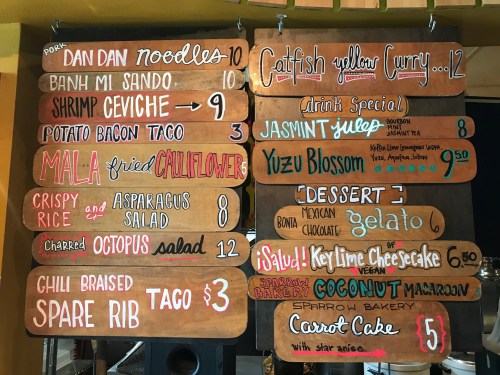 PORK
DAN DAN noodles 10
BANH MI SANDO 10
SHRIMP CEVICHE → 9
POTATO BACON TACO 3
MALA fried CAULIFLOWER
CRISPY RICE and ASPARAGUS SALAD 8
charred OCTOPUS salad 12
CHILI BRAISED
SPARE RIB TACO $3
Catfish yellow Curry...12
drink Special
JASMINT julep BOURBON MINT JASMINT TEA 8
YUZU BLOSSOM Yuzu, 9.50
[DESSERT]
BONTA MEXICAN CHOCOLATE gelato 6
¡Salud! Key Lime Cheesecake 6.50
VEGAN
SPARROW BAKERY COCONUT MACAROON
SPARROW BAKERY
Carrot Cake {5}
with star anise